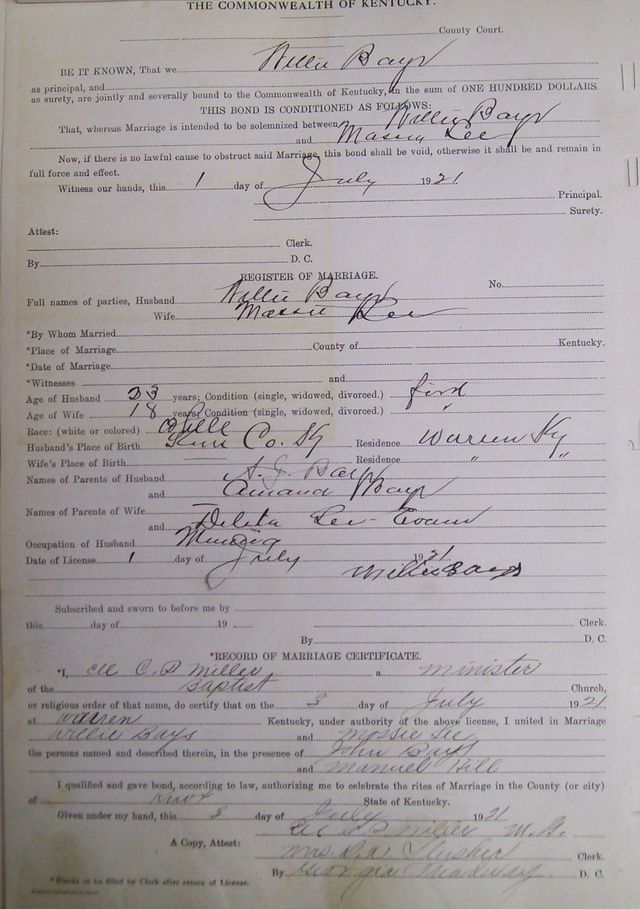 THE COMMONWEALTH OF KENTUCKY.
County Court.
BE IT KNOWN, That we Willie Bays
as principal, and
as surety, are jointly and severally bound to the Commonwealth of Kentucky, in the sum of ONE HUNDRED DOLLARS.
THIS BOND IS CONDITIONED AS FOLLOWS:
That, whereas Marriage is intended to be solemnized between Willie Bays
and Lee
Now, if there is no lawful cause to obstruct said Marriage, this bond shall be void, otherwise it shall be and remain in
full force and effect.
Witness our hands, this 1 day of July 1921
Principal.
Surety.
Attest:
Clerk.
By D. C.
REGISTER OF MARRIAGE.
No.
Full names of parties, Husband Willie Bays
Wife Lee
*By Whom Married
*Place of Marriage County of Kentucky.
*Date of Marriage
*Witnesses and
Age of Husband 23 years; Condition (single, widowed, divorced.) first
Age of Wife 18 years; Condition (single, widowed, divorced.) "
Race: (white or colored)
Husband's Place of Birth Co. Ky Residence Warren Ky
Wife's Place of Birth Residence " "
Names of Parents of Husband S. J. Bays
and Amanda Bays
Names of Parents of Wife
and Lee Evans
Occupation of Husband Mining
Date of License 1 day of July 1921
Willie Bays
Subscribed and sworn to before me by
this day of 19 Clerk.
By D. C.
*RECORD OF MARRIAGE CERTIFICATE.
*I, C. B Miller a minister
of the Baptist Church,
or religious order of that name, do certify that on the 3 day of July 1921
at Warren Kentucky, under authority of the above license, I united in Marriage
Willie Bays and Mossie Lee
the persons named and described therein, in the presence of John Bays
and Manuell Hill
I qualified and gave bond, according to law, authorizing me to celebrate the rites of Marriage in the County (or city)
of Knox State of Kentucky.
Given under my hand, this 3 day of July 1921
C B Miller M. G.
A Copy, Attest: Mrs. Clerk.
By Georgia D. C.
*Blanks to be filled by Clerk after return of License.